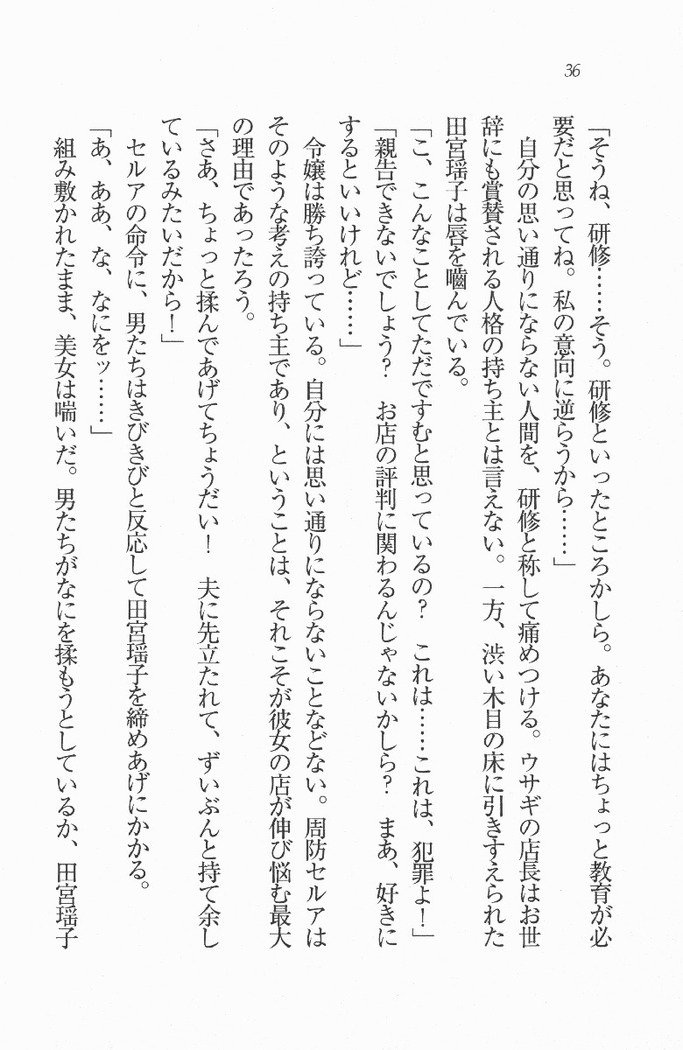 36
「そうね、研修……そう。研修といったところかしら。あなたにはちょっと教育が必
要だと思ってね。私の意向に逆らうから……」
自分の思い通りにならない人間を、研修と称して痛めつける。ウサギの店長はお世
辞にも賞賛される人格の持ち主とは言えない。一方、渋い木目の床に引きすえられた
田宮瑶子は唇を嚙んでいる。
「こ、こんなことしてただですむと思っているの？　これは……これは、犯罪よ！」
「親告できないでしょう？　お店の評判に関わるんじゃないかしら？　まあ、好きに
するといいけれど……」
令嬢は勝ち誇っている。自分には思い通りにならないことなどない。周防セルアは
そのような考えの持ち主であり、ということは、それこそが彼女の店が伸び悩む最大
の理由であったろう。
「さあ、ちょっと揉んであげてちょうだい！　夫に先立たれて、ずいぶんと持て余し
ているみたいだから！」
セルアの命令に、男たちはきびきびと反応して田宮瑶子を締めあげにかかる。
「あ、ああ、な、なにをッ……」
組み敷かれたまま、美女は喘いだ。男たちがなにを揉もうとしているか、田宮瑶子